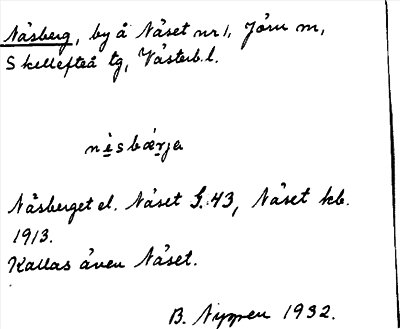 Näsberg, by å Näset nr 1, Jörn m,
Skellefteå tg, Västerb. l.
näsbærja
Näsberget el. Näset G. 43, Näset kb.
1913.
Kallas även Näset.
B. Nygren 1932.